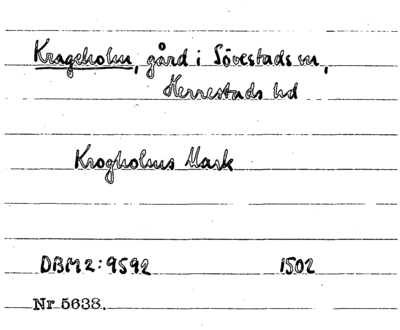 Krageholm, gård i Sövestads sn,
Herrestads hd
Krogholms Mark
DBM2:9592 1502
Nr 5638.